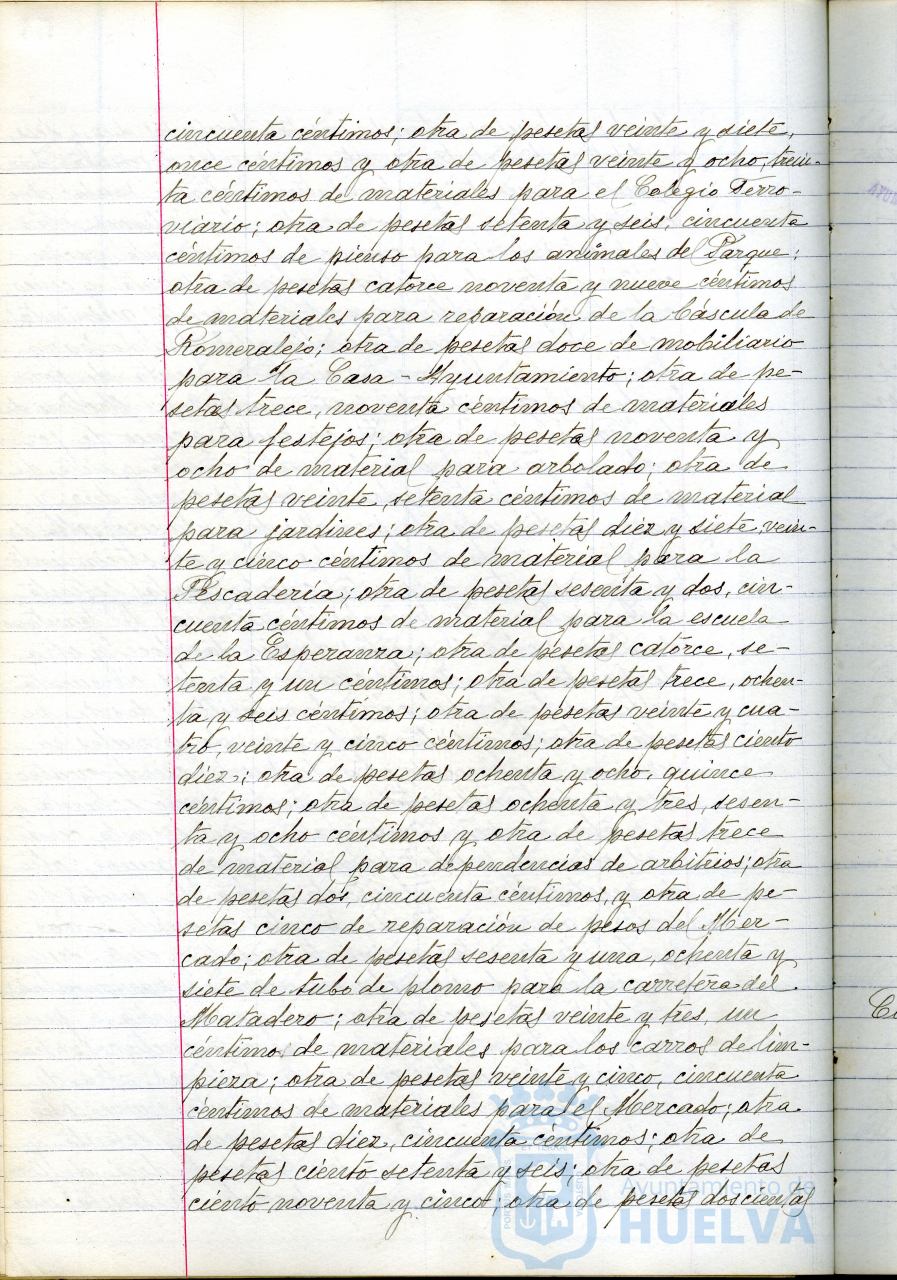 cincuenta céntimos; otra de pesetas veinte y siete,
once céntimos y otra de pesetas veinte y ocho, trein-
ta céntimos de materiales para el Colegio Ferro-
viario; otra de pesetas setenta y seis, cincuenta
céntimos de pienso para los animales del Parque;
otra de pesetas catorce noventa y nueve céntimos
de materiales para reparación de la báscula de
Romeralejo; otra de pesetas doce de mobiliario
para la Casa-Ayuntamiento; otra de pe-
setas trece, noventa céntimos de materiales
para festejos; otra de pesetas noventa y
ocho de material para arbolado; otra de
pesetas veinte, setenta céntimos de material
para jardines; otra de pesetas diez y siete, vein-
te y cinco céntimos de material para la
Pescadería; otra de pesetas sesenta y dos, cin-
cuenta céntimos de material para la escuela
de la Esperanza; otra de pesetas catorce, se-
tenta y un céntimos; otra de pesetas trece, ochen-
ta y seis céntimos; otra de pesetas veinte y cua-
tro, veinte y cinco céntimos; otra de pesetas ciento
diez; otra de pesetas ochenta y ocho, quince
céntimos; otra de pesetas ochenta y tres, sesen-
ta y ocho céntimos y otra de pesetas trece
de material para dependencias de arbitrios; otra
de pesetas dos, cincuenta céntimos, y otra de pe-
setas cinco de reparación de pesos del Mer-
cado; otra de pesetas sesenta y una, ochenta y
siete de tubo de plomo para la carretera del
Matadero; otra de pesetas veinte y tres, un
céntimo de materiales para los carros de lim-
pieza; otra de pesetas veinte y cinco, cincuenta
céntimos de materiales para el Mercado; otra
de pesetas diez, cincuenta céntimos; otra de
pesetas ciento setenta y seis; otra de pesetas
ciento noventa y cinco; otra de pesetas doscientas
Ayuntamiento de
HUELVA